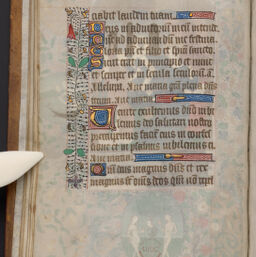 ciabit laudem tuam.
Deus in adiutoriū meū intende.
Dn̄e ad adiuuandū me festina.
Gloria pr̄i et filio et spū sancto.
Sicut erat in principio et nunc
et semper et in secula seculorū. am̄.
Alleluya. Aue maria gr̄a plena dn̄s
tecum. Aue maria.
Uenite exultemus dn̄o iubi
lemus deo salutari nostro
preocupemus faciē eius in confes
sione et in psalmis iubilemus ei.
Aue maria.
Qm̄ deus magnus dn̄s et rex
magnus sr̄ om̄s deos qm̄ nō repel